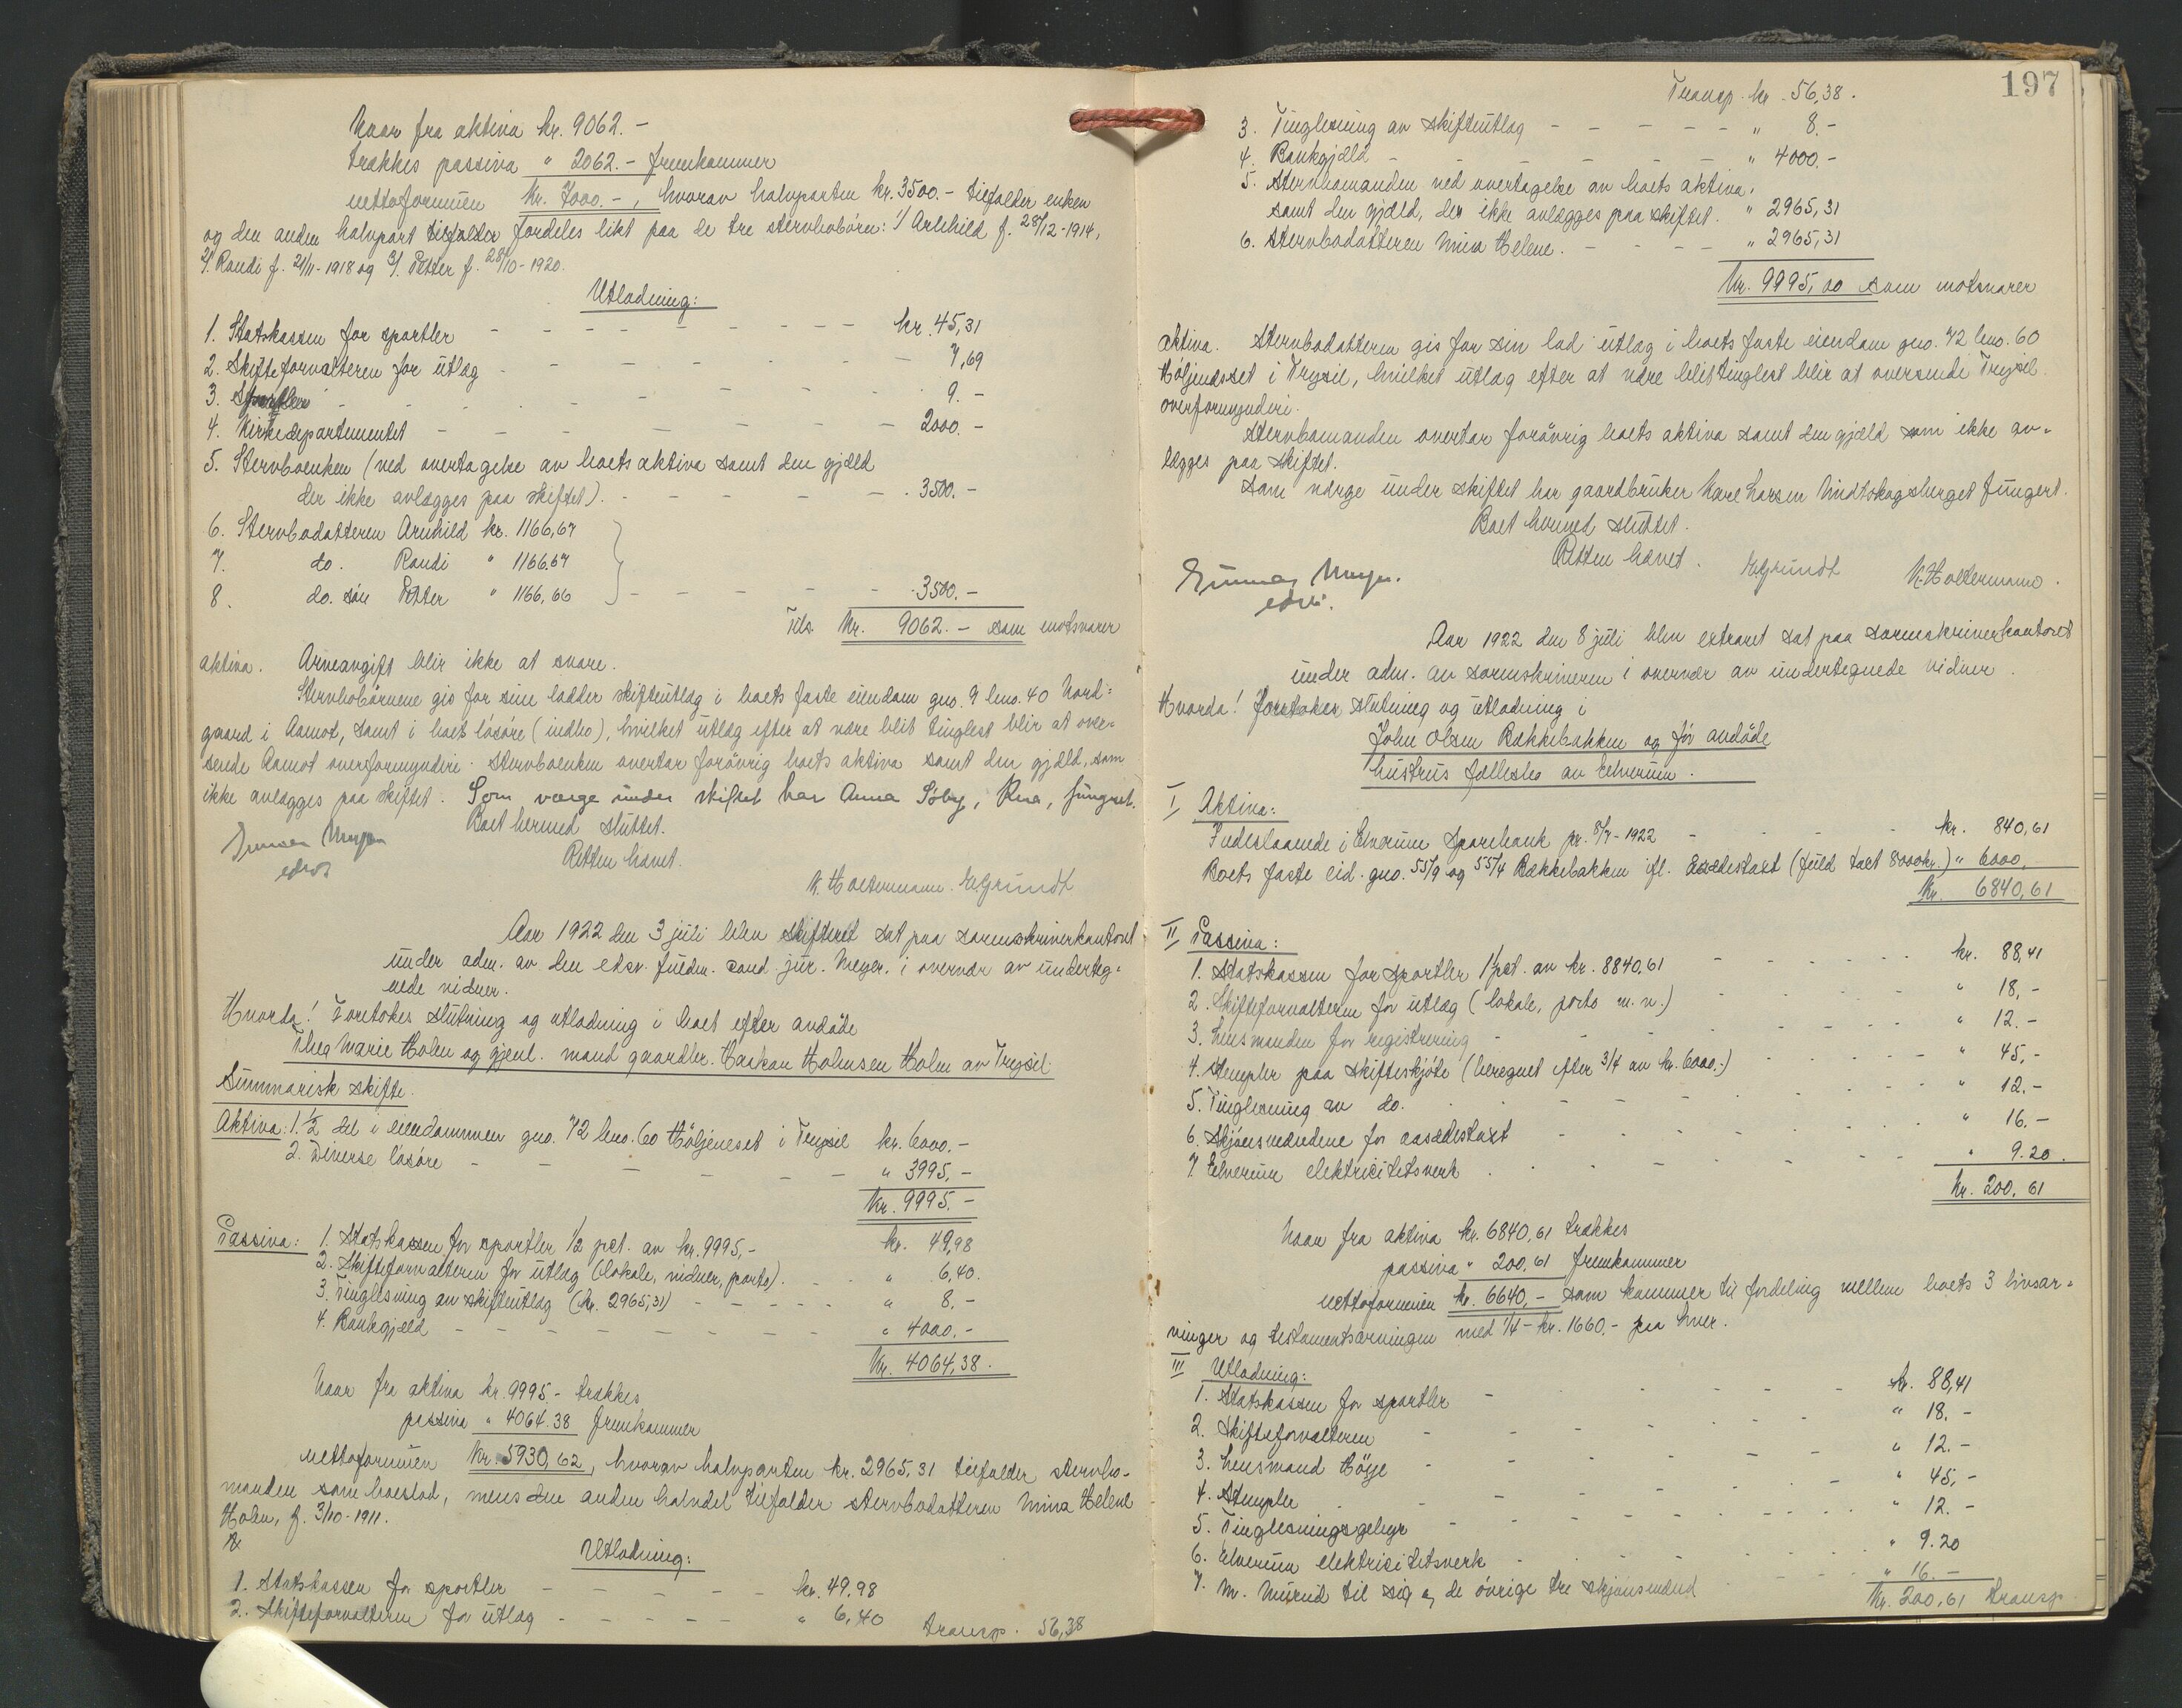 Naar fra aktiva kr. 9062.-
trækkes passiva " 2062.- fremkommer
nettoformuen kr. 7000.-, hvorav halvparten kr. 3500.- tilfalder enken
og den anden halvpart tilfalder fordeles likt paa de tre stervbobørn: 1/ Arnhild f. 28/12-1914,
2/. Randi f. 21/11-1918 og 3/. Petter f. 28/10-1920.
Utlodning:
1. Statskassen for sportler - - - - - - - kr. 45,31
2. Skifteforvalteren for utlæg - - - - - 7,69
3. Sportler - - - - - 9.-
4. Kirkedepartementet - - - - - 2000.-
5. Stervboenken (ved overtagelse av boets aktiva samt den gjæld
der ikke avlægges paa skiftet). - - - - - 3500.-
6. Stervbodatteren Arnhild kr. 1166,67
7. do. Randi " 1166.67
8. do. søn Petter " 1166,66 } - - - - - 3500.-
Tils. Kr. 9062.- som motsvarer
aktiva. Arveavgift blir ikke at svare.
Stervbobørnene gis for sine lodder skifteutlæg i boets faste eiendom gno. 9 bno. 40 Nord=
gaard i Aamot, samt i boets løsøre (indbo), hvilket utlæg efter at være blit tinglest blir at over-
sende Aamot overformynderi. Stervboenken overtar forøvrig boets aktiva samt den gjæld, som
ikke avlægges paa skiftet. Som verge under skiftet har Anna Søby, Rena, fungert.
Boet hermed sluttet.
Retten hævet.
Gunnar Meyer
edsv.
K. Holtermann. E. Grundt
Aar 1922 den 3 juli blev skifteret sat paa sorenskriverkontoret
under adm. av den edsv. fuldm. cand jur. Meyer. i overvær av underteg-
nede vidner.
Hvorda! Foretokes slutning og utlodning i boet efter avdøde
Thea Marie Holen og gjenl. mand gaardbr. Haakon Holmsen Holen av Trysil.
Summarisk skifte.
Aktiva: 1. 1/2 del i eiendommen gno. 72 bno. 60 Høljeneset i Trysil kr. 6000.-
2. Diverse løsøre - - - - - " 3995,-
Kr. 9995.-
Passiva: 1. Statskassen for sportler 1/2 pct. av kr. 9995,- kr. 49,98
2. Skifteforvalteren for utlæg (lokale, vidner, porto). - - " 6,40.
3. Tinglesning av skifteutlæg (kr. 2965,31) - - - - - " 8,-
4. Bankgjæld - - - - - - - " 4000.-
Kr. 4064,38.
Naar fra aktiva kr. 9995.- trækkes
passiva " 4064.38 fremkommer
nettoformuen Kr. 5930,62, hvorav halvparten kr. 2965,31 tilfalder stervbo-
manden som boeslod, mens den anden halvdel tilfalder stervbodatteren Mina Helene
Holen, f. 3/10-1911.
Utlodning:
1. Statskassen for sportler - - - - - kr. 49,98
2. Skifteforvalteren for utlæg - - - - - " 6,40 transp. 56,38
197
Transp. kr. 56,38.
3. Tinglesning av skifteutlæg - - - - - " 8.-
4. Bankgjæld - - - - - - " 4000.-
5. Stervbomanden ved overtagelse av boets aktiva,
samt den gjæld, der ikke avlægges paa skiftet. " 2965,31
6. Stervbodatteren Mina Helene. - - - - " 2965,31
Kr. 9995,00 som motsvarer
aktiva. Stervbodatteren gis for sin lod utlæg i boets faste eiendom gno. 72 bno. 60
Høljeneset i Trysil, hvilket utlæg efter at være blit tinglest blir at oversende Trysil
overformynderi.
Stervbomanden overtar forøvrig boets aktiva samt den gjæld som ikke av-
lægges paa skiftet.
Som verge under skiftet har gaardbruker Karel Larsen fungert.
Boet hermed sluttet.
Retten hævet.
Gunnar Meyer.
edsv.
E. Grundt K. Holtermann.
Aar 1922 den 8 juli blev extraret sat paa sorenskriverkontoret
under adm. av sorenskriveren i overvær av undertegnede vidner.
Hvorda! foretokes slutning og utlodning i
John Olsen Bækkebakken og før avdøde
hustrus fællesbo av Elverum.
I Aktiva:
Indestaaende i Elverum Sparebank pr. 8/7-1922 - - - - kr. 840,61
Boets faste eid. gno. 55/9 og 55/4 Bækkebakken ifl. aasædestakst (fuld takst 8000 kr.) " 6000,
Kr. 6840,61
II Passiva:
1. Statskassen for sportler 1 pct. av kr. 8840,61 - - - - - kr. 88,41
2. Skifteforvalteren for utlæg (lokale, porto m.v.) - - - - " 18,-
3. Lensmanden for registrering - - - - - " 12.-
4. Stempler paa skifteskjøte (beregnet efter 3/4 av kr. 6000.-) - - - - " 45,-
5. Tinglesning av do. - - - - - " 12.-
6. Skjønsmændene for aasædestakst - - - - - " 16.-
7. Elverum elektricitetsverk - - - - - " 9.20.
Kr. 200,61
Naar fra aktiva kr. 6840,61 trækkes
passiva " 200,61 fremkommer
nettoformuen kr. 6640,- som kommer til fordeling mellem boets 3 livsar-
vinger og testamentsarvingen med 1/4 - kr. 1660.- paa hver.
III Utlodning:
1. Statskassen for sportler - - - - - kr. 88,41
2. Skifteforvalteren - - - - - " 18.-
3. Lensmand Høije - - - - - " 12.-
4. Stempler - - - - - " 45,-
5. Tinglesningsgebyr - - - - - " 12.-
6. Elverum elektricitetsverk - - - - - " 9.20
7. M. Murud til sig og de øvrige tre skjønsmænd - - - " 16.-
Kr. 200,61 transp.